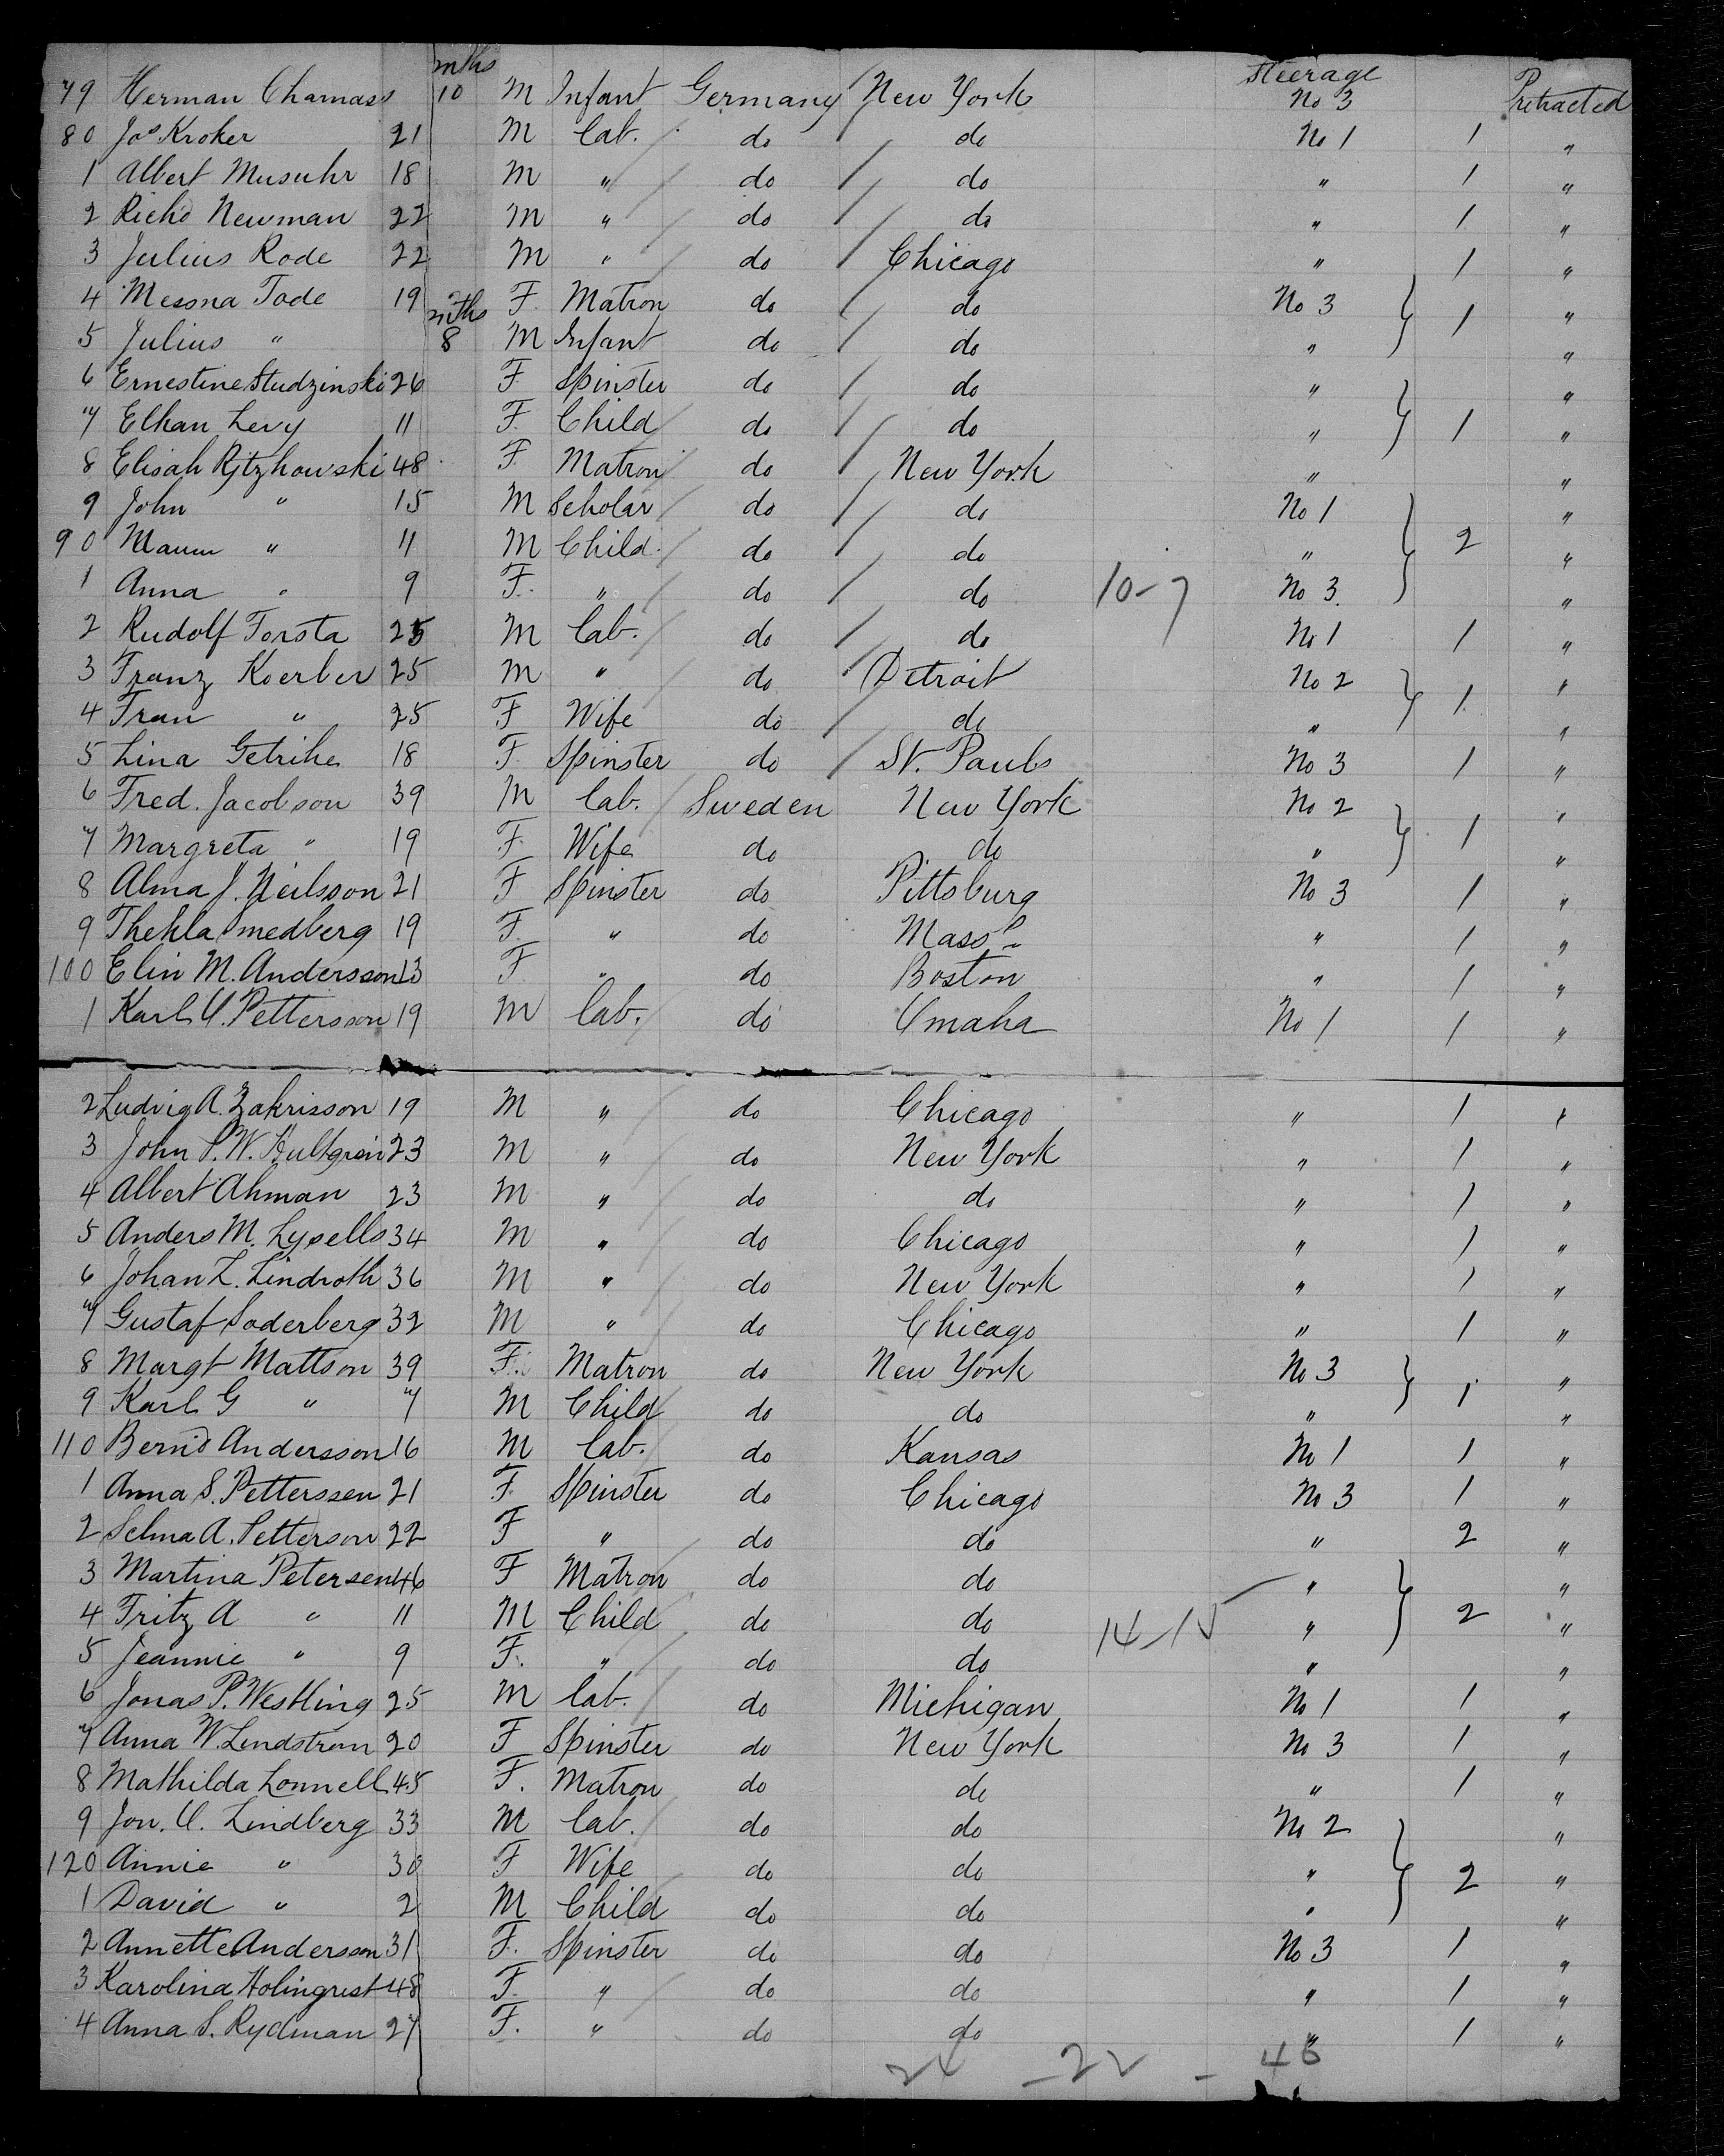 mths Steerage
79 Herman Charnass 10 M Infant Germany New York No 3 Protracted
80 Jos Kroker 21 M Lab. do do No 1 1 "
1 Albert Musuhr 18 M " do do " 1 "
2 Richd Newman 22 M " do do " 1 "
3 Julius Rode 22 M " do Chicago " 1 "
4 Mesona Tode 19 F Matron do do No 3 1 "
5 Julius " mths 8 M Infant do do " "
6 Ernestine Studzinski 26 F Spinster do do " "
7 Elkan Levy 11 F. Child do do " 1 "
8 Elisah 48 F Matron do New York " "
9 John " 15 M Scholar do do No 1 "
90 " 11 M Child do do " 2 "
1 Anna " 9 F. " do do 10-7 No 3 "
2 Rudolf Torsta 25 M Lab. do do No 1 1 "
3 Franz Koerber 25 M " do Detroit No 2 1 "
4 Frau " 25 F Wife do do " "
5 Lina Getrihe 18 F Spinster do St. Pauls No 3 1 "
6 Fred. Jacobson 39 M Lab. Sweden New York No 2 "
7 Margreta " 19 F. Wife do do " 1 "
8 Alma J. Neilsson 21 F Spinster do Pittsburg No 3 1 "
9 Thekla Smedberg 19 F. " do Mass " 1 "
100 Elin M. Andersson 23 F " do Boston " 1 "
1 Karl O. Pettersson 19 M Lab. do Omaha No 1 1 "
2 Ludvig A. Zakrisson 19 M " do Chicago " 1 "
3 John P. W. Hultgren 23 M " do New York " 1 "
4 Albert Ahman 23 M " do do " 1 "
5 Anders M. Lysells 34 M " do Chicago " 1 "
6 Johan L. Lindroth 36 M " do New York " 1 "
7 Gustaf Soderberg 32 M " do Chicago " 1 "
8 Margt Mattson 39 F. Matron do New York No 3 "
9 Karl G " 7 M Child do do " 1 "
110 Bernd Andersson 16 M Lab. do Kansas No 1 1 "
1 Anna S. Petterssen 21 F. Spinster do Chicago No 3 1 "
2 Selma A. Petterson 22 F " do do " 2 "
3 Martina Petersen 46 F Matron do do " "
4 Fritz A " 11 M Child do do 14-15 " 2 "
5 Jeannie " 9 F. " do do " "
6 Jonas P. Westling 25 M Lab. do Michigan No 1 1 "
7 Anna W. Lindstrom 20 F Spinster do New York No 3 1 "
8 Mathilda Lonnell 45 F. Matron do do " 1 "
9 Jon. O. Lindberg 33 M Lab. do do No 2 "
120 Annie " 30 F Wife do do " 2 "
1 David " 2 M Child do do " "
2 Annette Anderson 31 F. Spinster do do No 3 1 "
3 Karolina Holingrist 48 F. " do do " 1 "
4 Anna S. Rydman 27 F. " do do " 1 "
24 - 22 - 46